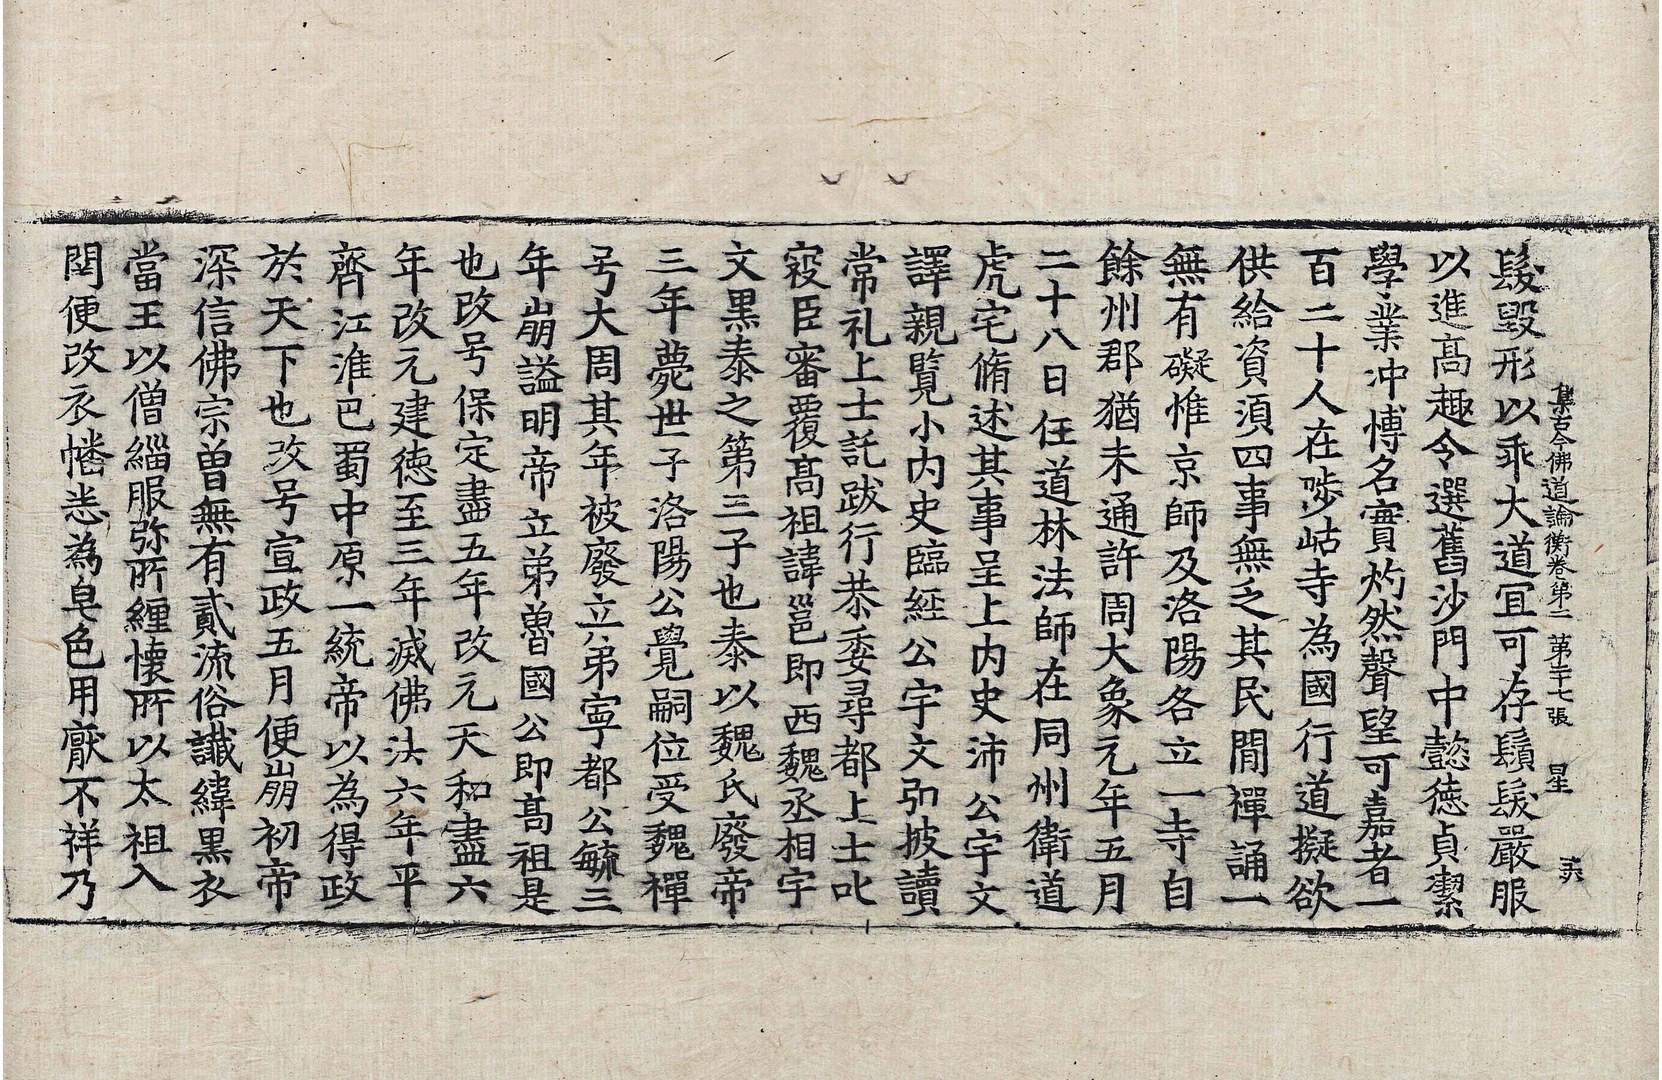 集古今佛道論衡卷第二　第三十七張　星　三六
髮毀形以乖大道宜可存鬚髮嚴服
以進高趣令選舊沙門中懿德貞潔
學業冲博名實灼然聲望可嘉者一
百二十人在陟岵寺為國行道擬欲
供給資湏四事無乏其民間禪誦一
無有礙惟京師及洛陽各立一寺自
餘州郡猶未通許周大象元年五月
二十八日任道林法師在同州衛道
虎宅脩述其事呈上内史沛公宇文
譯親覽小内史臨經公宇文弘披讀
常礼上士託跋行恭委尋都上士叱
寇臣審覆高祖諱邕即西魏丞相宇
文黒泰之第三子也泰以魏氏廢帝
三年薨世子洛陽公覺嗣位受魏禪
号大周其年被廢立弟寧都公毓三
年崩謚明帝立弟魯國公即高祖是
也改号保定盡五年改元天和盡六
年改元建德至三年滅佛法六年平
齊江淮巴蜀中原一統帝以為得政
於天下也改号宣政五月便崩初帝
深信佛宗曽無有貳流俗讖緯黒衣
當王以僧緇服弥所纏懷所以太祖入
関便改衣幡悉為皂色用厭不祥乃